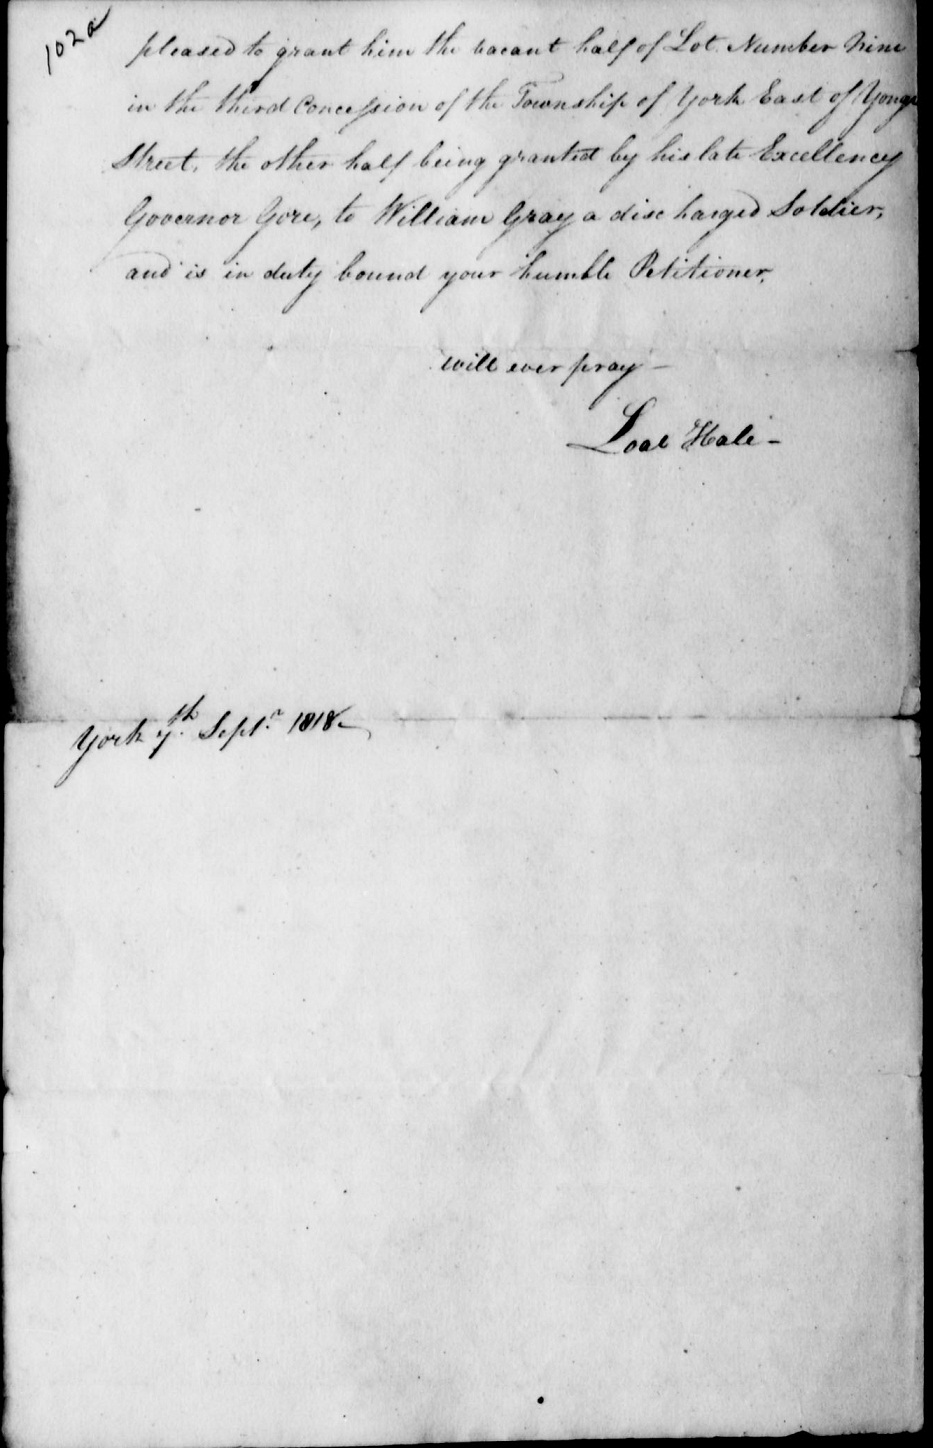 102a
pleased to grant him the vacant half of Lot Number Nine
in the third Concession of the Township of York East of Yonge
Street, the other half being granted by his late Excellency
Governor Gore, to William Gray a discharged Soldier,
and is in duty bound your humble Petitioner,
will ever pray -
Hale -
York 7th Septr 1818